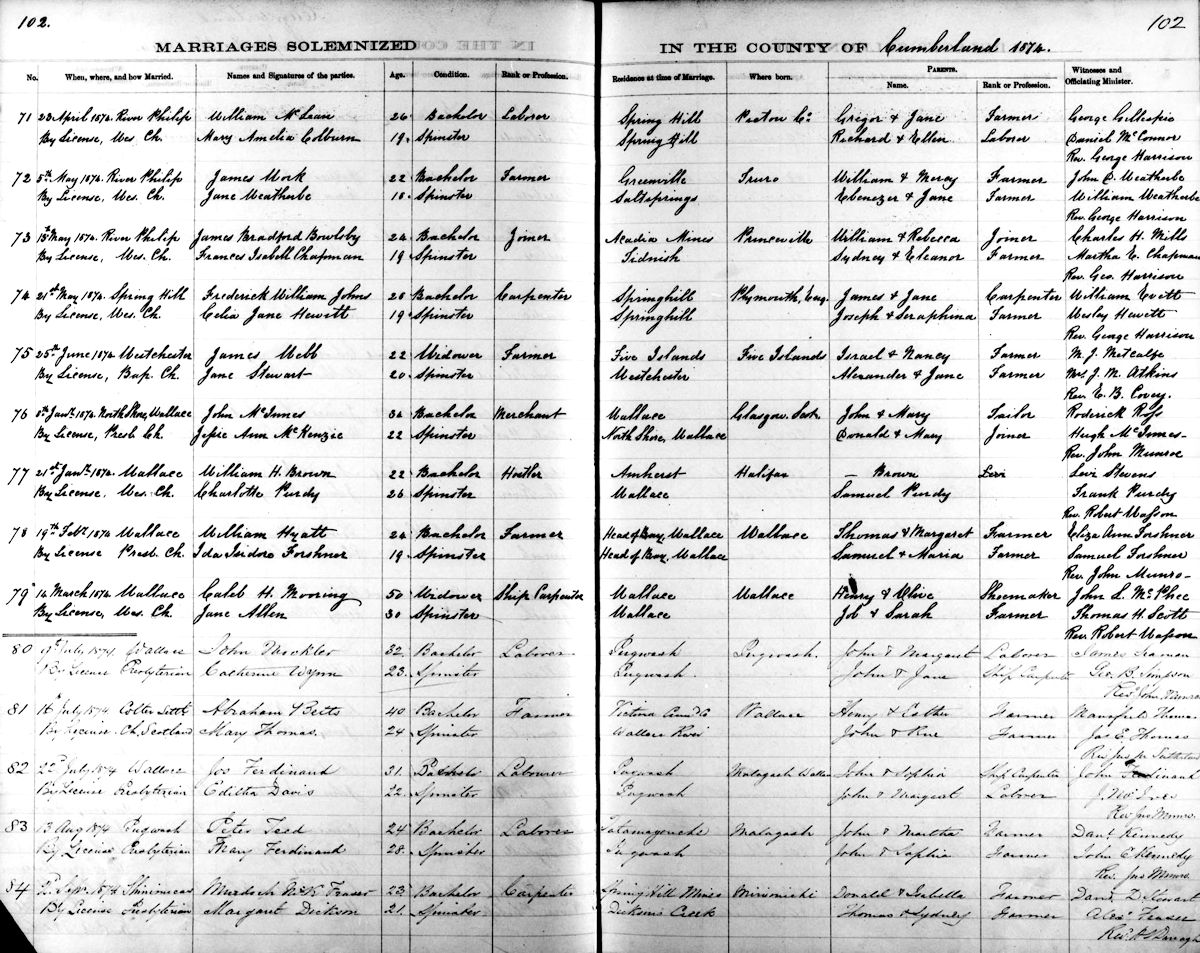 102.
102
MARRIAGES SOLEMNIZED IN THE COUNTY OF Cumberland 1874.
No. When, where, and how Married. Names and Signatures of the parties. Age. Condition. Rank or Profession. Residence at time of Marriage. Where born. PARENTS. Name. Rank or Profession. Witnesses and Officiating Minister.
71 23 April 1874. River Philip William McLean 26 Bachelor Laborer Spring Hill Pictou Co. Gregor & Jane Farmer George Gillespie
By License, Wes. Ch. Mary Amelia Colburn 19 Spinster Spring Hill Richard & Ellen Laborer Daniel McConnor
Rev. George Harrison
72 5th May 1874. River Philip James Mork 22 Bachelor Farmer Greenville Truro William & Mercy Farmer John D. Weatherbe
By License, Wes. Ch. Jane Weatherbe 18 Spinster Saltsprings Ebenezer & Jane Farmer William Weatherbe
Rev. George Harrison
73 18th May 1874. River Philip James Bradford Bowlsby 24 Bachelor Joiner Acadia Mines Princeville William & Rebecca Joiner Charles H. Mills
By License, Wes. Ch. Frances Isabell Chapman 19 Spinster Tidnish Sydney & Eleanor Farmer Martha E. Chapman
Rev. Geo. Harrison
74 21st May 1874. Spring Hill Frederick William Johns 28 Bachelor Carpenter Springhill Plymouth, Eng. James & Jane Carpenter William Evitt
By License, Wes. Ch. Celia Jane Hewitt 19 Spinster Springhill Joseph & Seraphina Farmer Wesley Hewitt
Rev. George Harrison
75 25th June 1874 Westchester James Webb 22 Widower Farmer Five Islands Five Islands Israel & Nancy Farmer M. J. Metcalfe
By License, Bap. Ch. Jane Stewart 20 Spinster Westchester Alexander & Jane Farmer Mrs J. M. Atkins
Rev. E. B. Covey.
76 8th Jany. 1874. North Shore, Wallace John McInnes 34 Bachelor Merchant Wallace Glasgow, Scot. John & Mary Tailor Roderick Ross
By License, Presb. Ch. Jessie Ann McKenzie 22 Spinster North Shore, Wallace Donald & Mary Joiner Hugh McInnes
Rev. John Munroe
77 21st Jany. 1874 Wallace William H. Brown 22 Bachelor Hostler Amherst Halifax — Brown Levi Stevens
By License, Wes. Ch. Charlotte Purdy 26 Spinster Wallace Samuel Purdy Frank Purdy
Rev. Robert Wasson
78 19th Feby. 1874 Wallace William Hyatt 24 Bachelor Farmer Head of Bay, Wallace Wallace Thomas & Margaret Farmer Eliza Ann Forshner
By License Presb. Ch Ida Isidore Forshner 19 Spinster Head of Bay, Wallace Samuel & Maria Farmer Samuel Forshner
Rev. John Munro
79 14 March 1874 Wallace Caleb H. Mooring 50 Widower Ship Carpenter Wallace Wallace Henry & Olive Shoemaker John L. McPhee
By License, Wes. Ch. Jane Allen 30 Spinster Wallace Job & Sarah Farmer Thomas H. Scott
Rev. Robert Wasson
80 July 1874 Wallace John 32 Bachelor Laborer Pugwash Pugwash. John & Margaret Laborer James Seaman
By License Presbyterian Catherine Wynn 23 Spinster Pugwash John & Jane Ship Carpenter Geo. B. Simpson
Rev. John Munro
81 16 July 1874 Colter Settlt Abraham Betts 40 Bachelor Farmer Victoria Wallace Henry & Esther Farmer Thomas
By License Ch. Scotland Mary Thomas. 24 Spinster Wallace River John & Farmer Jas E. Thomas
Rev. Sutherland
82 22d July 1874 Wallace Jos Ferdinand 31 Bachelor Labourer Pugwash Malagash Wallace John & Sophia Ship Carpenter John Ferdinand
By License Presbyterian Editha Davis 22 Spinster Pugwash John & Margaret Laborer
Rev. Jno Munro
83 13 Aug 1874 Pugwash Peter Teed 24 Bachelor Laborer Tatamagouche Malagash John & Martha Farmer Danl Kennedy
By License Presbyterian Mary Ferdinand 28 Spinster Pugwash John & Sophia Farmer John C. Kennedy
Rev. Jno Munro
84 2d Sept. 1874 Shinimicas Murdoch Fraser 23 Bachelor Carpenter Spring Hill Mines Mirimichi Donald & Isabella Farmer David D. Stewart
By License Presbyterian Margaret Dickson 21 Spinster Dicksons Creek Thomas & Sydney Farmer Alexr Fraser
Rev.